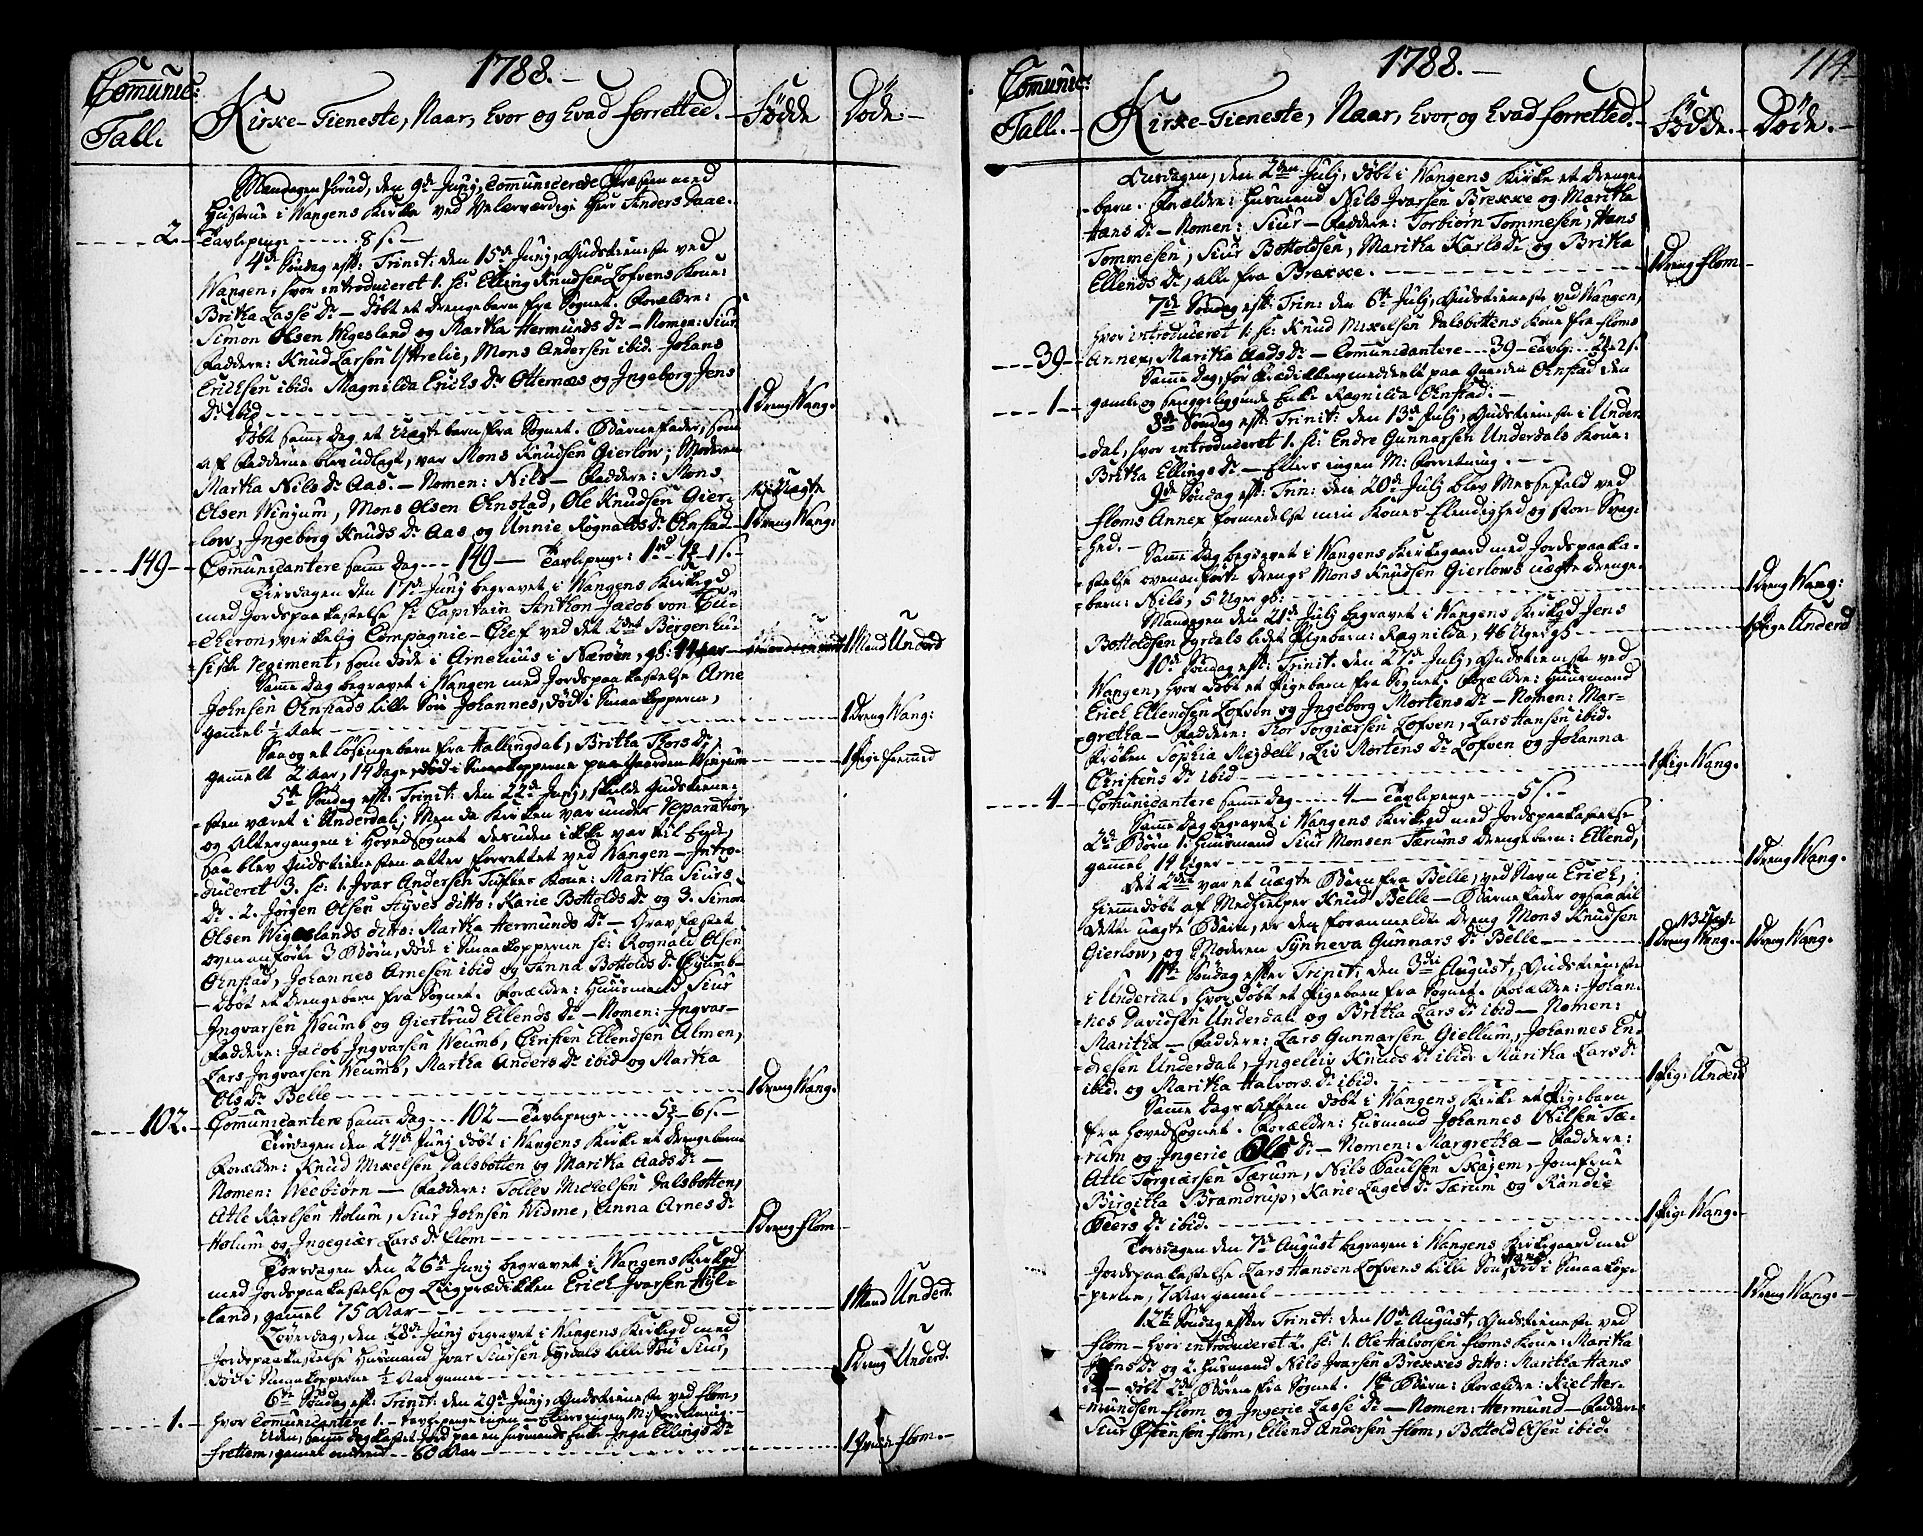 1788.-
Comunic: Tall. Kirke-Tieneste, Naar, hvor og hvad forretted. Fødde Døde.-
Mandagen forud, den 9de Junj, Communicerede Præsten med
Hustrue i Wangens Kirke ved Velærværdige Herr Anders Daae.
2. Tavlepenge ----- 8 s.-
4de Søndag eft: Trinit: den 15de Junj, Gudstieneste ved
Wangen, hvor introduceret 1. sc: Elling Knudsen Lofvens Kone:
Britha Lasse Dr - Døbt et Drengebarn fra Sognet. Forældre:
Simon Olsen Wigesland og Martha Hermunds Dr - Nomen: Siur.
Faddere: Knud Larsen Ytrelie, Mons Andersen ibid. Johans
Erichsen ibid. Magnilda Erichs Dr Otternæs og Ingeborg Jens
Dr ibid --- 1 Dreng Wang:
Døbt samme Dag et Uægte barn fra Sognet. Barnefader, som
af Fadderne blev udlagt, var Mons Knudsen Gierlow; Moderen
Martha Nils Dr Aas. - Nomen: Nils - Faddere: Mons
Olsen Winjum, Mons Olsen Ohnstad, Ole Knudsen Gier-
low, Ingeborg Knuds Dr Aas og Unnie Rognalds Dr Ohnstad 1 Dreng Wang:
149 Communicantere samme Dag --- 149 - Tavlepenge: 1 rd
Tirsdagen den 17de Junj begravet i Wangens Kirkegd
med Jordspaakastelse sc: Capitain Anthon Jacob von
cheron, virkelig Compagnie-Chef ved det 2det Bergenhu-
siske Regiment, som døde i Arnehuus i Nærøen, gl: 44 aar 1 Mand Underd
Samme Dag begravet i Wangen med Jordspaakastelse Arne
Johnsen Ohnstads lille Søn Johannes, død i Smaakopperne,
gammel 1/2 Aar 1 Dreng Wang:
Saa og et løsingebarn fra Hallingdal, Britha Thors Dr,
gammelt 2 Aar, 14 Dage, død i Smaakopperne paa Gaarden Winjum 1 Pige fremmed
5te Søndag eft: Trinit: den 22de Junj, skulde Gudstiene-
sten været i Underdal; Men da Kirken var under reparation,
og Altergangen i Hoved Sognet desuden ikke var til Ende,
saa blev Gudstienesten atter forrettet ved Wangen - Intro-
duceret 3. sc: 1. Ivar Andersen Tuftes Kone: Maritha Siurs
Dr. 2. Jørgen Olsen Styves ditto: Karie Bottolds Dr og 3. Simon
Olsen Wigeslands ditto: Martha Hermunds Dr - Gravfæstet
ovenanførte 3 Børn, døde i Smaakopperne sc: Rognald Olsen
Ohnstad, Johannes Arnesen ibid og Anna Bottolds Dr
- Døbt et Drengebarn fra Sognet. Forældre: Huusmand Siur
Ingvarsen Heumb og Giertrud Ellends Dr - Nomen: Ingvar-
Faddere: Jacob Ingvarsen Heumb, Christen Ellendsen Almen,
Lars Ingvarsen Heumb, Martha Anders Dr ibid og Martha
Ols Dr Belle 1 Dreng Wang:
102. Communicantere samme Dag --- 102 - Tavlepenge ---- 5 6 s.-
Tirsdagen den 24de Junj Døbt i Wangens Kirke et Drengebarn
Forældre: Knud Mikelsen Dalsbotten og Maritha Aads Dr -
Nomen: Weebiørn - Faddere: Tollev Michelsen Dalsbotten,
Atle Karlsen Holum, Siur Johnsen Widme, Anna Arnes Dr
Holum og Ingegiær Lars Dr Flom 1 Dreng Flom
Torsdagen den 26de Junj begravet i Wangens Kirkegd
med Jordspaakastelse og Liigprædikken Erich Ivarsen
land, gammel 75 Aar 1 Mand Underd.
Løverdag, den 28de Junj begravet i Wangens Kirkegd med
Jordspaakastelse Husmand Ivar Siursen Dyrdals lille Søn Siur,
død i Smaakopperne 1/2 Aar gammel 1 Dreng Underd.
6te Søndag eft: Trinit: den 29de Junj, Gudstieneste ved Flom,
1. hvor Communicantere 1. - Tavlepenge ingen - Ellers ingen M: Forretning.
samme Dag kastet Jord paa en Husmands Enke Inga Ellings Dr
Frettem, gammel omtrent -- 60 Aar 1 Flom.-
1788.-
114
Comunic: Tall.- Kirke-Tieneste, Naar, hvor og hvad forretted.- Fødde.- Døde.-
Onsdagen, den 2den Julj, døbt i Wangens Kirke et Drenge-
barn. Forældre: Husmand Nils Ivarsen Brekke og Maritha
Hans Dr - Nomen: Siur - Faddere: Torbiørn Tommesen, Hans
Tommesen, Siur Bottoldsen, Maritha Karls Dr og Britha
Ellends Dr, alle fra Brekke. 1 Dreng Flom
7de Søndag eft: Trin: den 6te Julj, Gudstieneste ved Wangen,
hvor introduceret 1. sc: Knud Mikelsen Dalsbottens Kone fra Floms
39 Annex, Maritha Aads Dr - Communicantere --- 39 - Tavlp:
Samme Dag, før Prædikken meddeelt paa Gaarden Ohnstad den
1 gamle og sengeliggende Enke Ragnilda Ohnstad. -
8de Søndag eft: Trinit: den 13de Julj, Gudstieneste i Under-
dal, hvor introduceret 1. sc: Endre Gunnarsen Underdals Kone:
Britha Ellings Dr - Ellers ingen M: Forretning. - - -
9de Søndag eft: Trin: den 20de Julj blev Messefald ved
Floms Annex formedelst min Kones Elendighed og stor Svag-
hed. -
Samme Dag begravet i Wangens Kirkegaard med Jordspaaka-
stelse ovenanførte Drengs Mons Knudsen Gierlows uægte Drenge-
barn: Nils, 5 Uger gl: 1 Dreng Wang:
Mandagen den 21de Julj begravet i Wangens Kirkegd Jens
Bottoldsen Dyrdals lidet Pigebarn: Ragnilda, 46 Uger gl 1 Pige Underd
10de Søndag eft: Trinit. den 27de Julj, Gudstieneste ved
Wangen, hvor døbt et Pigebarn fra Sognet. Forældre: Huusmand
Erich Ellendsen Lofven og Ingeborg Mortens Dr - Nomen: Mar-
gretha - Faddere: Thor Torgiersen Lofven, Lars Hansen ibid.
Frøken Sophia Mejdell, Liv Mortens Dr Lofven og Johanna
Christens Dr ibid 1 Pige Wang.
4 Communicantere samme Dag ---- 4 - Tavlepenge ---- 5 s.-
Samme Dag begravet i Wangens Kirkegd med Jordspaakastelse
2de Børn 1. Huusmand Siur Monsen Tærums Drengebarn: Ellend,
gammel 14 Uger 1 Dreng Wang.
Det 2det var et uægte Barn fra Belle, ved Navn Erich,
hiemmedøbt af Medhielper Knud Belle - Barnefader ogsaa til
dette uægte Barn, er den forommeldte Dreng Mons Knudsen NB Uægte
Gierlow, og Moderen Synneva Gunnars Dr Belle 1 Dreng Wang. 1 Dreng Wang.
11te Søndag efter Trinit: den 3die August, Gudstieneste
i Underdal, hvor døbt et Pigebarn fra Sognet. Forældre: Johan-
nes Davidsen Underdal og Britha Lars Dr ibid - Nomen:
Maritha - Faddere: Lars Gunnarsen Giellum, Johannes En-
dresen Underdal, Ingeleiv Knuds Dr ibid Maritha Lars Dr
ibid. og Maritha Halvors Dr ibid. 1 Pige Underd
Samme Dags Aften døbt i Wangens Kirke et Pigebarn
fra Hoved Sognet. Forældre: Husmand Johannes Nilsen Tæ-
rum og Ingerie Ols Dr - Nomen: Margretha - Faddere:
Atle Torgiersen Tærum, Nils Paulsen Skajem, Jomfrue
Birgitha Bramdrup, Karie Lages Dr Tærum og Randie
Peers Dr ibid. 1 Pige Wang.
Torsdagen den 7de August begraven i Wangens Kirkegaard med
Jordspaakastelse Lars Hansen Lofvens lille Søn død i Smaakop-
perne, 7 Aar gammel 1 Dreng Wang.
12te Søndag efter Trinit: den 10de August, Gudstieneste ved
Flom - hvor introduceret 2. sc: 1. Ole Halvorsen Floms Kone: Maritha
Jens Dr og 2. Husmand Nils Ivarsen Brekkes ditto: Maritha Hans
Dr - døbt 2de Børn fra Sognet. 1te Barn: Forældre: Kiel Her-
mundsen Flom og Ingerie Lasse Dr - Nomen: Hermund - Faddere:
Siur Østensen Flom, Ellend Andersen Flom, Bottold Olsen ibid.